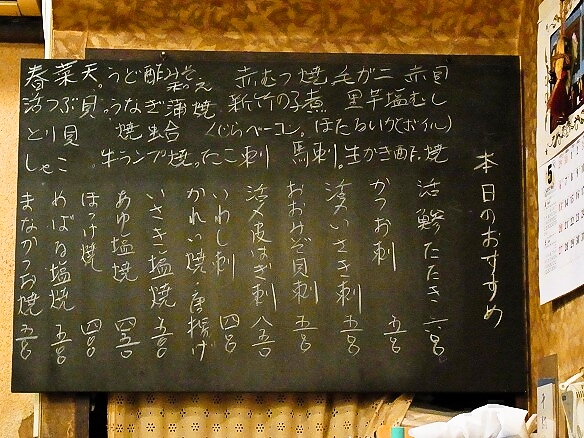 春菜天。うど酢みそ和え 赤むつ焼 毛がニ 赤貝
活つぶ貝。うなぎ蒲焼。新竹の子煮 里芋塩むし
とり貝 焼蛤 くじらベーコン。ほたるいか(ボイル)
しゃこ。牛ランプ焼。たこ刺 馬刺。生かき酢。焼
本日のおすすめ
活鯵たたき 六.〇〇
かつお刺 五.〇〇
活〆いさき刺 五.〇〇
おおみぞ貝刺 五.〇〇
活〆皮はぎ刺 八五〇
いわし刺 四〇〇
かれい焼・唐揚げ
いさき塩焼 五.〇〇
あゆ塩焼 四五〇
ほっけ焼 四〇〇
めばる塩焼 五.〇〇
まながつお焼 五.〇〇
5